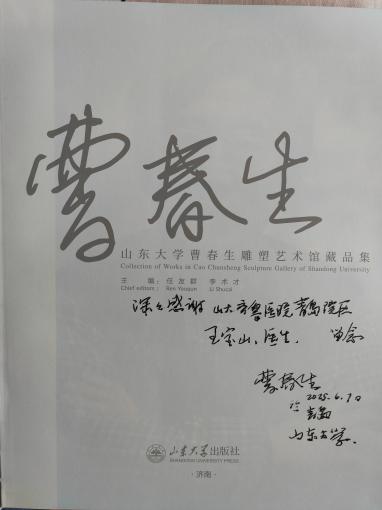 曹春生
山东大学曹春生雕塑艺术馆藏品集
Collection of Works in Cao Chunsheng Sculpture Gallery of Shandong University
主 编：任友群 李术才
Chief editors: Ren Youqun Li Shucai
深深感谢 山大齐鲁医院青岛院区
王宝山 医生 留念
曹春生
2025.6.7日
于 青岛
山东大学.
山东大学出版社
SHANDONG UNIVERSITY PRESS
·济南·